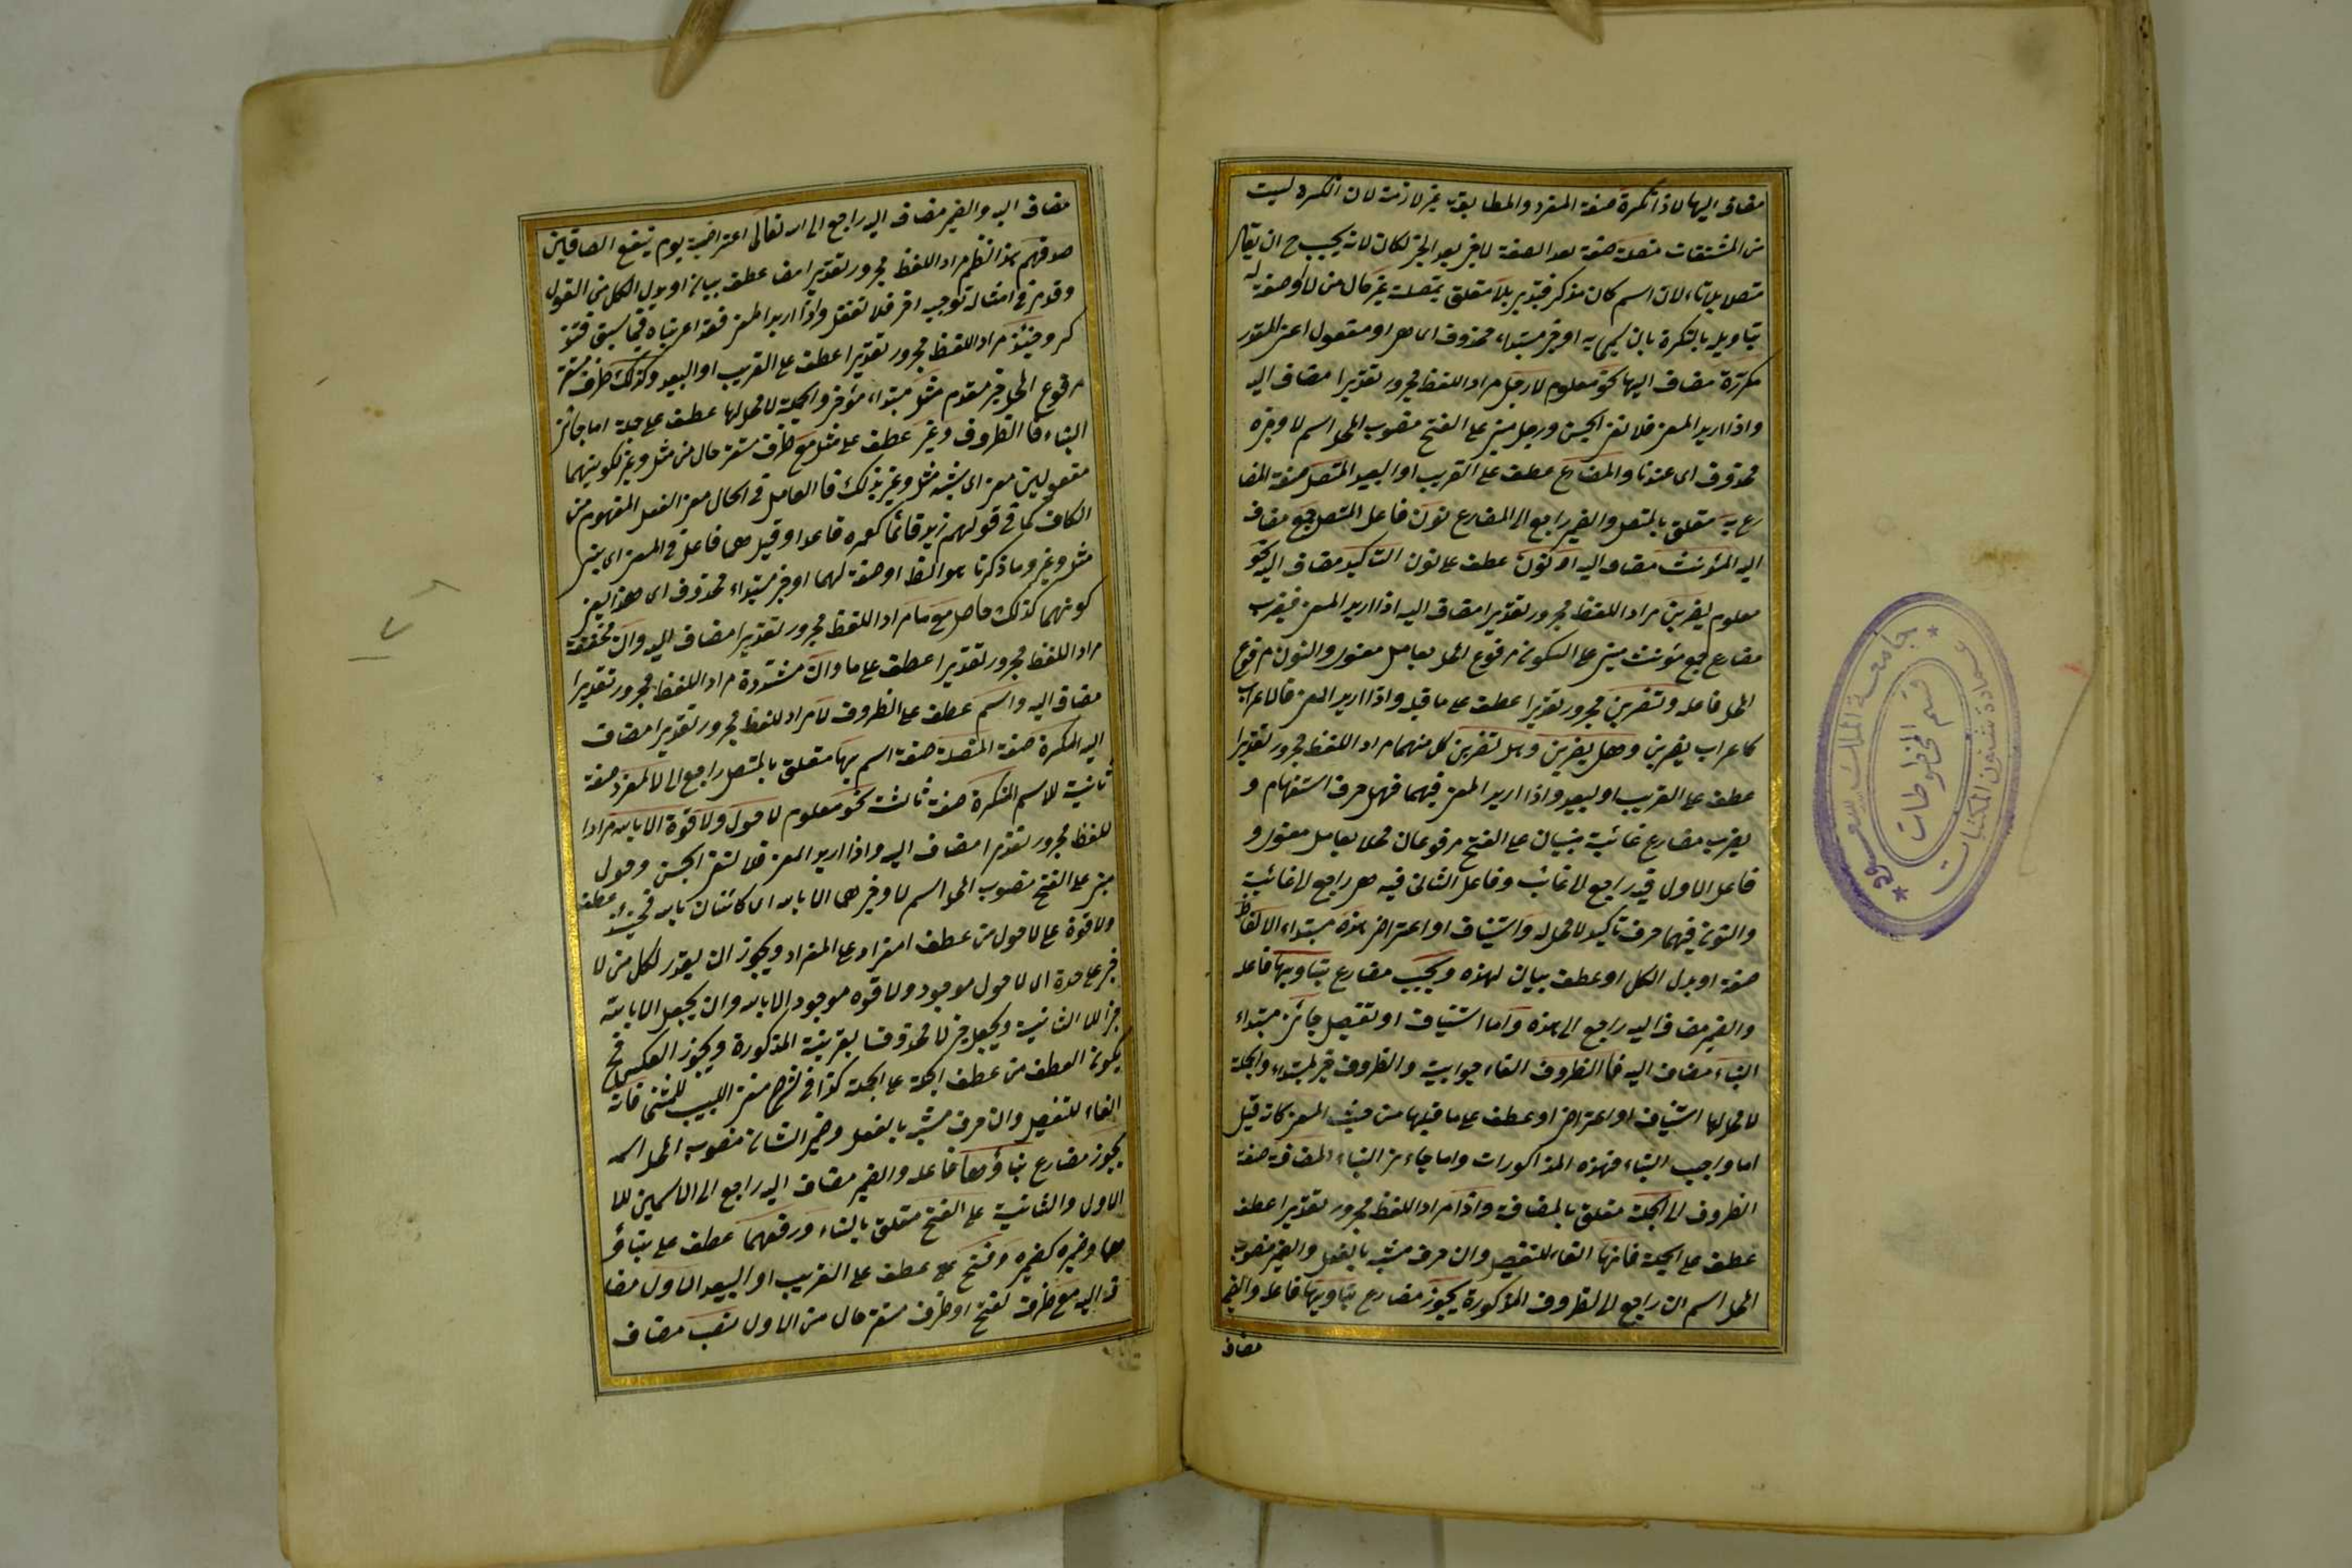 مضاف اليها لاذا نكرة صفة المفرد والمطابقة غير لازمة لان النكرة ليست
من المشتقات متصلة صفة بعد الصفة لا خبر بعد الخبر لكان لانه يجب ح ان يقال
متصلا بلا تاء لان اسم كان مذكر فتدبر بلا متعلق بمتصلة غير حال من لا او صفة له
بتاويله بالنكرة بان يسمى به او خبر مبتداء محذوف اى هى او مفعول اعنى المقدر
مكررة مضاف اليها نحو معلوم لا رجل مراد اللفظ مجرور تقديرا مضاف اليه
واذا اريد المعنى فلا لنفى الجنس ورجل مبنى على الفتح منصوب المحل اسم لا وخبره
محذوف اى عندنا والمضارع عطف على القريب او البعيد المتصل صفة المضا
رع به متعلق بالمتصل والضمير راجع الى المضارع نون فاعل المتصل جمع مضاف
اليه المؤنث مضاف اليه او نون عطف على نون التاكيد مضاف اليه نحو
معلوم يضربن مراد اللفظ مجرور تقديرا مضاف اليه اذا اريد المعنى فيضرب
مضارع جمع مؤنث مبنى على السكون مرفوع المحل بعامل معنوى والنون مرفوع
المحل فاعله وتضربن مجرور تقديرا عطف على ما قبله واذا اريد المعنى فالاعراب
كاعراب يضربن وهل يضربن وهل تضربن كل منهما مراد اللفظ مجرور تقديرا
عطف على القريب او البعيد واذا اريد المعنى فيهما فهل حرف استفهام و
يضرب مضارع غائبة مبنيان على الفتح مرفوعان محلا بعامل معنوى و
فاعل الاول فيه راجع الى غائب وفاعل الثانى فيه هى راجع الى غائبة
والنون فيهما حرف تاكيد لا محل له واستيناف او اعتراض هذه مبتداء الالفاظ
صفة او بدل الكل او عطف بيان لهذه ويجب مضارع بناوبها فاعله
والضمير مضاف اليه راجع الى هذه واما استيناف او تفصيل جائز مبتداء
البناء مضاف اليه فا الظروف الفاء جوابية والظروف خبر المبتداء والجملة
لا محل لها استيناف او اعتراض او عطف على ما قبلها من حيث المعنى كانه قيل
اما واجب البناء فهذه المذكورات واما جائز البناء المضافة صفة
الظروف الى الجملة متعلق بالمضافة واذا مراد اللفظ مجرور تقديرا عطف
عطف على الجملة فانها الفاء للتفصيل وان حرف مشبه بالفعل والضمير منصوب
المحل اسم ان راجع الى الظروف المذكورة يجوز مضارع بناويها فاعله والضمير
مضاف
مضاف اليه والضمير مضاف اليه راجع الى الله تعالى اعتراضية يوم ينفع الصادقين
صدقهم هذا النظم مراد اللفظ مجرور تقديرا مضا عطف بيان او بدل الكل من القول
وقد مر فى امثاله توجيه اخر فلا تغفل واذا اريد المعنى فقد اعربناه فيما سبق فتذ
كر وحينئذ مراد اللفظ مجرور تقديرا عطف على القريب او البعيد وكذلك ظرف مستقر
مرفوع المحل خبر مقدم مثل مبتداء مؤخر والجملة لا محل لها عطف على جملة اما جائز
البناء فا الظروف وغير عطف على مثل مع ظرف مستقر حال من مثل وغير لكونهما
مفعولين معنى اى يشبه مثل وغير بذلك فا العامل فى الحال معنى الفعل المفهوم من
الكاف كما فى قولهم زيد قائما كعمرو قاعدا وقيل هما فاعل فى المعنى اى يبنى
مثل وغير وما ذكرنا هو الظ او صفة لهما او خبر مبتداء محذوف اى هذا يعنى
كونهما كذلك حاصل مع ما مراد اللفظ مجرور تقديرا مضاف اليه وان مخففة
مراد اللفظ مجرور تقديرا عطف على ما وان مشددة مراد اللفظ مجرور تقديرا
مضاف اليه واسم عطف على الظروف لا مراد للفظ مجرور تقديرا مضاف
اليه المكرة صفة المتصلة صفة اسم بها متعلق بالمتصل راجع الى لا المفرد صفة
ثانية للاسم النكرة صفة ثالثة نحو معلوم لا حول ولا قوة الا بالله مرادا
للفظ مجرور تقديرا مضاف اليه واذا اريد المعنى فلا لنفى الجنس وحول
مبنى على الفتح منصوب المحل اسم لا وخبر هى الا بالله اى كائنان بالله فحينئذ عطف
ولا قوة على لا حول من عطف المفراد على المفراد ويجوز ان يقدر لكل من لا
خبر على حدة اى لا حول موجود ولا قوه موجود الا بالله وان يجعل الا بالله
خبر للا الثانية ويجعل خبر لا محذوفا بقرينة المذكورة ويجوز العكس فح
يكون العطف من عطف الجملة على الجملة كذا فى شرح مغنى اللبيب للشمنى فانه
الفاء للتفصيل وان حرف مشبه بالفعل وضمير الشان منصوب المحل اسمه
يجوز مضارع بناؤهما فاعله والضمير مضاف اليه راجع الى الاسمين للا
الاول والثانية على الفتح متعلق بالبناء ورفعهما عطف على بناؤ
هما وضميره كضميره وفتح عطف على القريب او البعيد الاول مضا
ف اليه مع ظرف لفتح او ظرف مستقر حال من الاول نصب مضاف
جامعة الملك سعود
عمادة شئون المكتبات
قسم المخطوطات